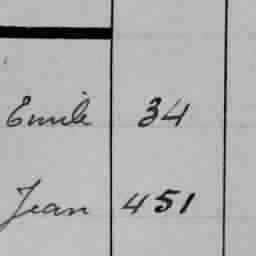 Emile 34
Jean 451